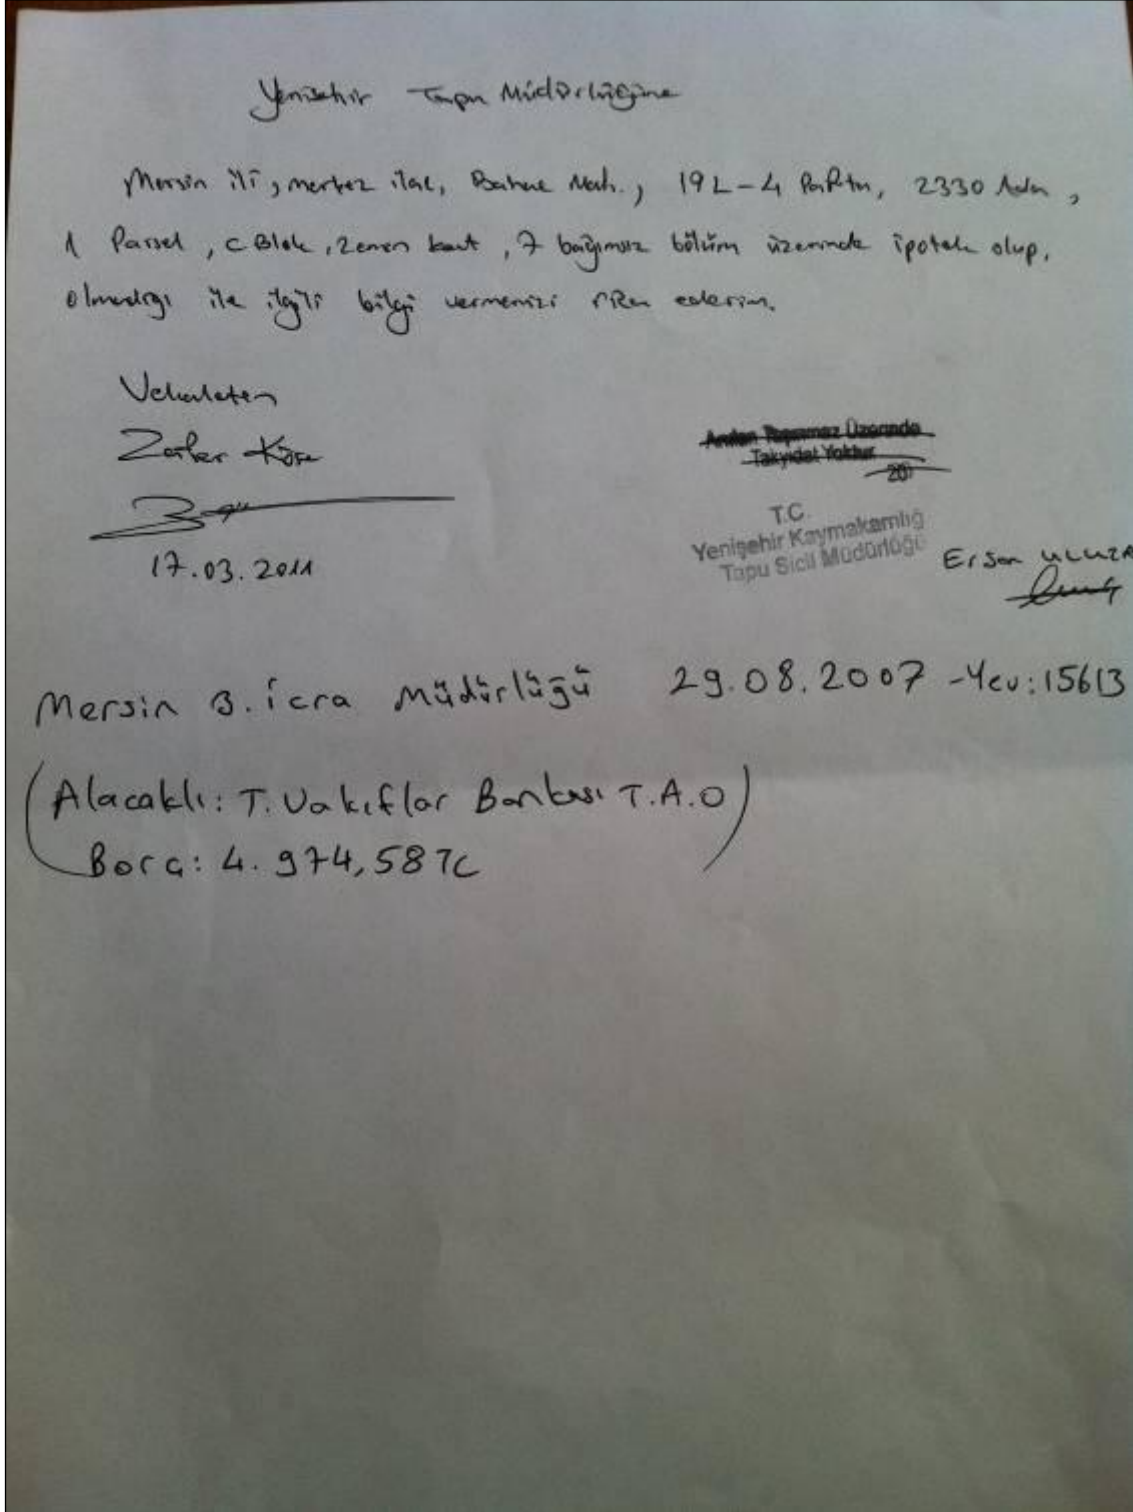 Yenişehir Tapu Müdürlüğüne
Mersin ili, merkez ilçe, Bahçe Mah., 19L-4 Pafta, 2330 Ada,
1 Parsel, C Blok, zemin kat, 7 bağımsız bölüm üzerinde ipotek olup,
olmadığı ile ilgili bilgi vermenizi rica ederim.
Vekaleten
Zafer Köse
17.03.2011
Taşınmaz Üzerinde
Takyidat Yoktur
20
T.C.
Yenişehir Kaymakamlığ
Tapu Sicil Müdürlüğü
Ersan
Mersin 3. İcra Müdürlüğü 29.08.2007 -Yev: 15613
(Alacaklı: T. Vakıflar Bankası T.A.O)
Borç: 4.974,58 TL